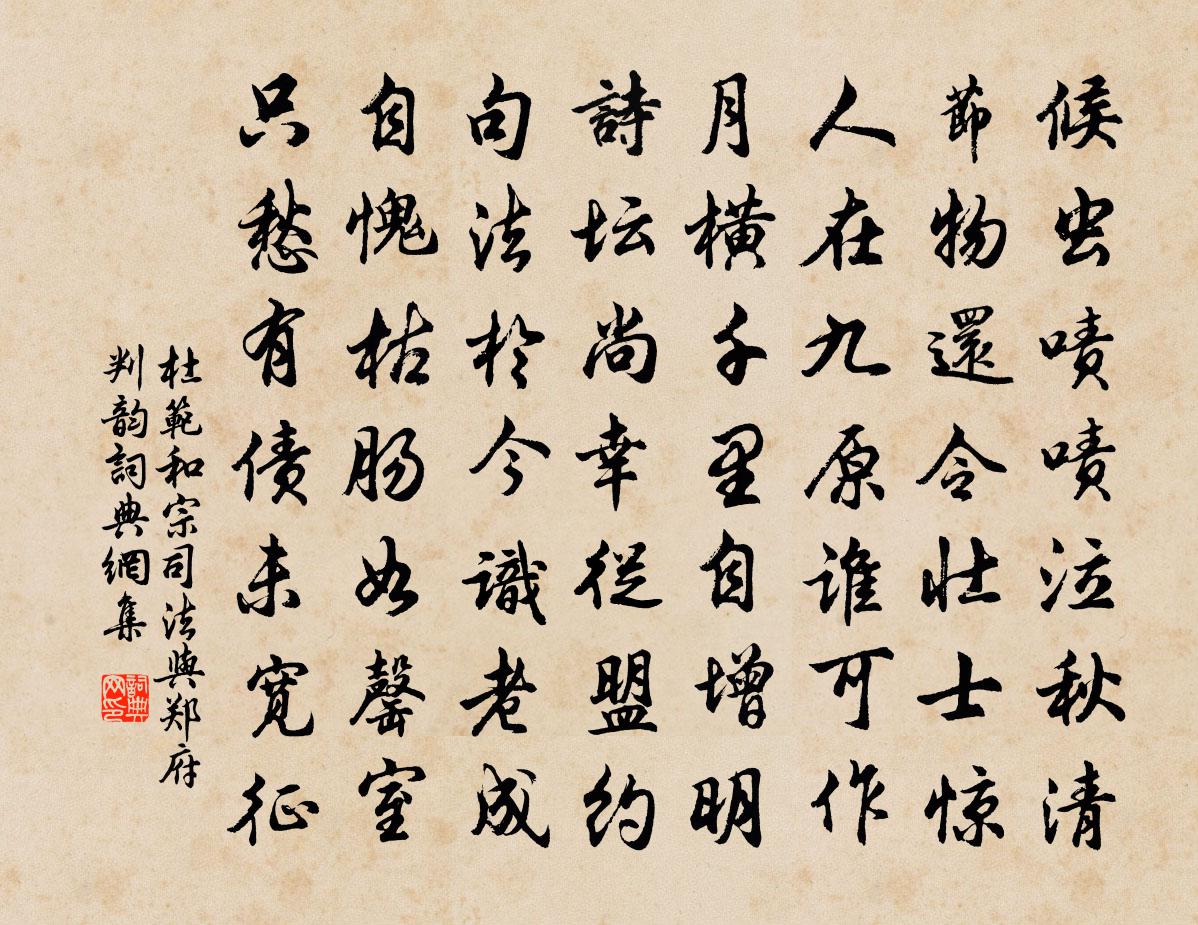 候虫啧啧泣秋清
節物還令壮士惊
人在九原谁可作
月横千里自增明
詩坛尚幸從盟约
句法於今識老成
自愧枯肠如罄室
只愁有债未宽征
杜範和宗司法與郑府
判韵詞典網集
詞典网印